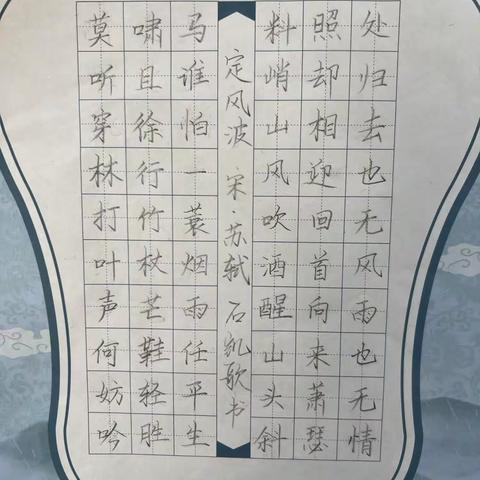 莫听穿林打叶声何妨吟
啸且徐行竹杖芒鞋轻胜
马谁怕一蓑烟雨任平生
定风波 宋·苏轼 石凯歌书
料峭山风吹酒醒山头斜
照却相迎回首向来萧瑟
处归去也无风雨也无情